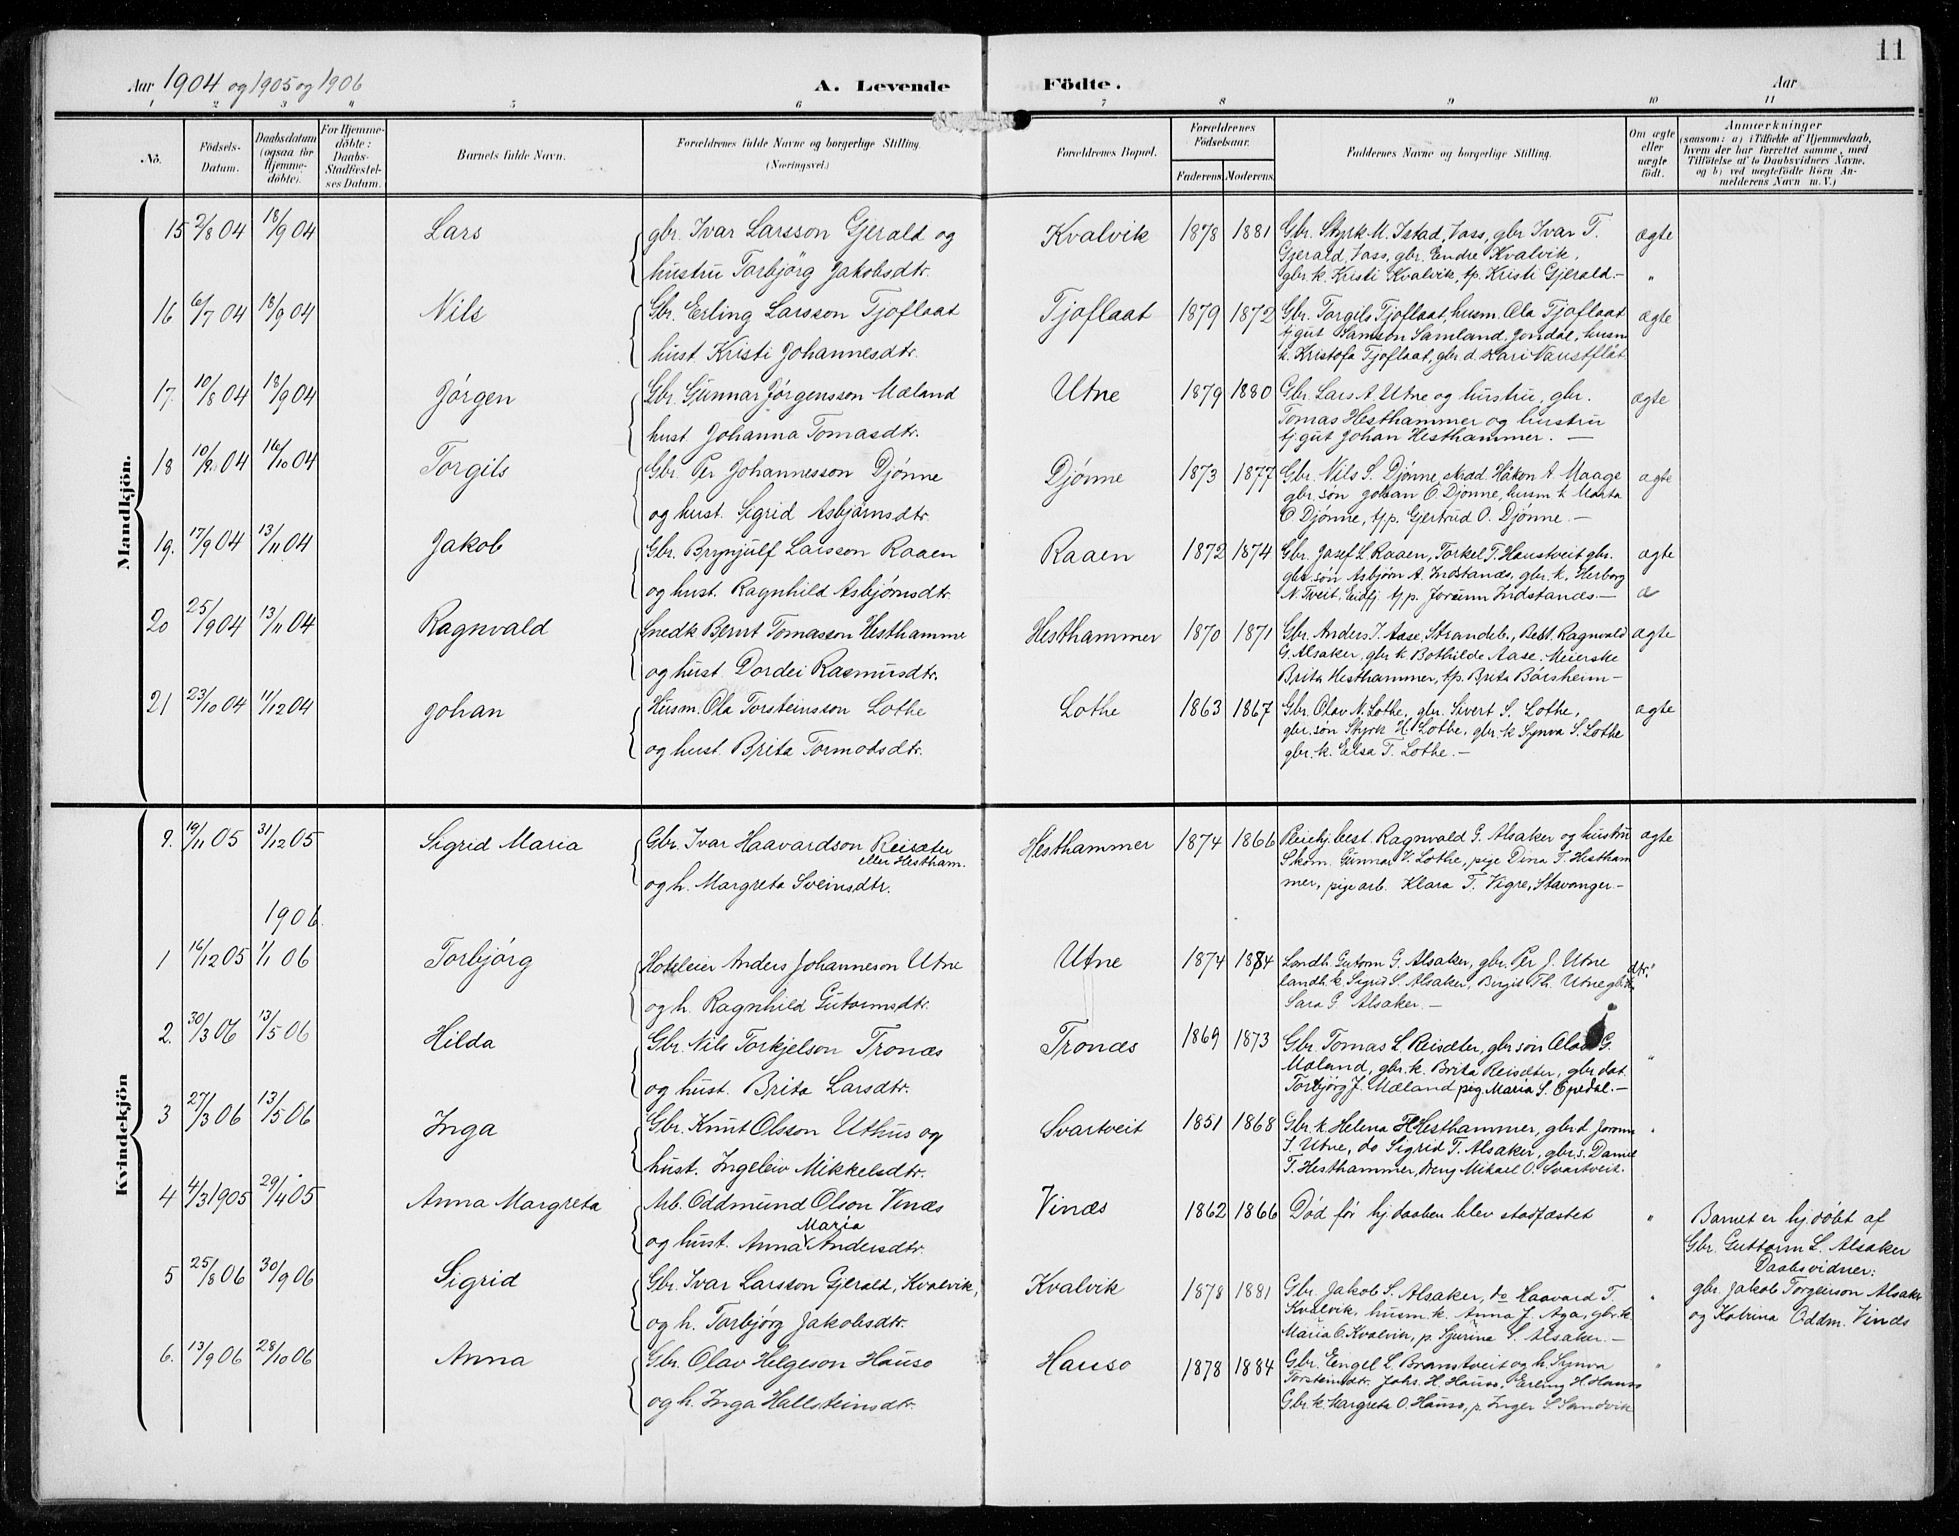 11
Aar 1904 og 1905 og 1906
A. Levende Födte.
Aar
1 2 3 4 5 6 7 8 9 10 11
No.
Födsels-Datum.
Daabsdatum (ogsaa for Hjemmedöbte).
For Hjemmedöbte: Daabs-Stadfæstelses Datum.
Barnets fulde Navn.
Forældrenes fulde Navne og borgerlige Stilling. (Næringsvei.)
Forældrenes Bopæl.
Forældrenes Födselsaar.
Faderens. Moderens.
Faddernes Navne og borgerlige Stilling.
Om ægte eller uægte födt.
Anmærkninger
(saasom: a) i Tilfælde af Hjemmedaab, hvem der har forrettet samme, med Tilföielse af to Daabsvidners Navne, og b) ved uægtefödte Börn Anmelderens Navn m. V.)
Mandkjön.
15 2/8 04 18/9 04 Lars gbr. Ivar Larsson Gjerald og Kvalvik 1878 1881 Gbr. Styrk M. Istad, Vass, gbr Ivar T. ægte
hustru Torbjörg Jakobsdtr. Gjerald, Vass, gbr. Endre Kvalvik,
gbr. k. Kristi Kvalvik, tp. Kristi Gjerald.— "
16 6/7 04 18/9 04 Nils Gbr. Erling Larsson Tjoflaat Tjoflaat 1879 1872 Gbr. Torgils Tjoflaat, husm. Ola Tjoflaat ægte
hust. Kristi Johannesdtr. tj. gut Samson Samland, Jondal, husm
k. Kristofa Tjoflaat, gbr. d. Kari Naustflåt.
17. 10/8 04 18/9 04 Jørgen Gbr. Gunnar Jørgensson Mæland Utne 1879 1880 Gbr. Lars A. Utne og hustru, gbr. ægte
hust. Johanna Tomasdtr. Tomas Hesthammer og hustru
tj. gut Johan Hesthammer. —
18 10/9 04 16/10 04 Torgils Gbr. Per Johannesson Djønne Djønne 1873 1877 Gbr. Nils S. Djønne, skræd. Håkon A. Maage ægte
og hust. Sigrid Asbjørnsdtr. gbr. søn Johan O. Djønne, husm k. Marta
O. Djønne, tp. Gjertrud O. Djønne. —
19. 17/9 04 13/11 04 Jakob Gbr. Brynjulf Larsson Raaen Raaen 1872 1874 Gbr. Josef L Raaen, Torkel T. Haustveit gbr. ægte
og hust. Ragnhild Asbjørnsdtr. gbr søn Asbjørn A. Indstanæs, gbr. k. Herborg
N. Tveit, Eidfj. tp. Jorunn Indstanæs.—
20 25/9 04 13/11 04 Ragnvald Snedk Bernt Tomasson Hesthamme Hesthammer 1870 1871 Gbr. Anders J. Aase, Strandeb., Best. Ragnvald ægte
og hust Dordei Rasmusdtr. G. Alsaker, gbr k. Bothilde Aase, Meierske
Brita Hesthammer, tp. Brita Børsheim —
21 23/10 04 11/12 04 Johan Husm. Ola Torsteinsson Lothe Lothe 1863 1867 Gbr. Olav N. Lothe, gbr. Sivert S. Lothe, ægte
og hust. Brita Tormodsdtr. gbr. søn Styrk H. Lothe, gbr. k Synva S. Lothe
gbr. k. Elsa T. Lothe. —
Kvindekjön
9. 19/11 05 31/12 05 Sigrid Maria Gbr. Ivar Haavardson Reisæter Hesthammer 1874 1866 best. Ragnvald G. Alsaker og hustru ægte
eller Hestham.
og h. Margreta Sveinsdtr. Skom. Gunnar V. Lothe, pige Dina T. Hestham
mer, pige arb. Klara T. Vigre, Stavanger.—
1906
1 16/12 05 1/1 06 Torbjörg Hoteleier Anders Johanneson Utne Utne 1874 1884 Landh. Gutorm G. Alsaker, gbr. Per J. Utne "
og h. Ragnhild Gutormsdtr. landh. k. Sigrid S. Alsaker, Birgit Th. Utne gbr. dtr.
Sara G. Alsaker. —
2. 30/3 06 13/5 06 Hilda Gbr. Nils Torkjelson Tronæs Tronæs 1869 1873 Gbr. Tomas L Reisæter, gbr søn Olav G. "
og hust. Brita Larsdtr. Mæland, gbr. k. Brita Reisæter, gbr. dat.
Torbjörg J. Mæland pig. Maria S. Opedal.—
3 27/3 06 13/5 06 Inga Gbr. Knut Olsson Uthus og Svartveit 1851 1868 Gbr. k. Helena H Hesthammer, gbr d. Jorunn "
hust. Ingeleiv Mikkelsdtr. J. Utne, do Sigrid T. Alsaker, gbr. s. Daniel
T. Hesthammer, dreng Mikael O. Svartveit.
4 4/3 1905 29/4 05 Anna Margreta Arb. Oddmund Olson Vinæs Vinæs 1862 1866 Död før hj. daaben blev stadfæstet " Barnet er hj. döbt af
Maria
og hust. Anna Andersdtr. Gbr. Guttorm L. Alsaker
Daabsvidner:
5 25/8 06 30/9 06 Sigrid Gbr. Ivar Larsson Gjerald, Kvalvik, Kvalvik 1878 1881 Gbr. Jakob S. Alsaker, do Haavard T. " gbr. Jakob Torgeirson Alsaker
og h. Torbjørg Jakobsdtr. Kvalvik, husm k. Anna J. Aga, gbr. k. og Katrina Oddm. Vinæs
Maria O. Kvalvik, p. Sjurina S. Alsaker. —
6. 13/9 06 28/10 06 Anna Gbr. Olav Helgeson Hauso Hauso 1878 1884 Gbr. Engel L. Branstveit og h. Synva "
og h. Inga Hallsteinsdtr. Torsteindtr. Johs. H. Hauso, Erling H. Hauso
Gbr. k. Margreta O. Hauso, p. Inger S. Sandvik